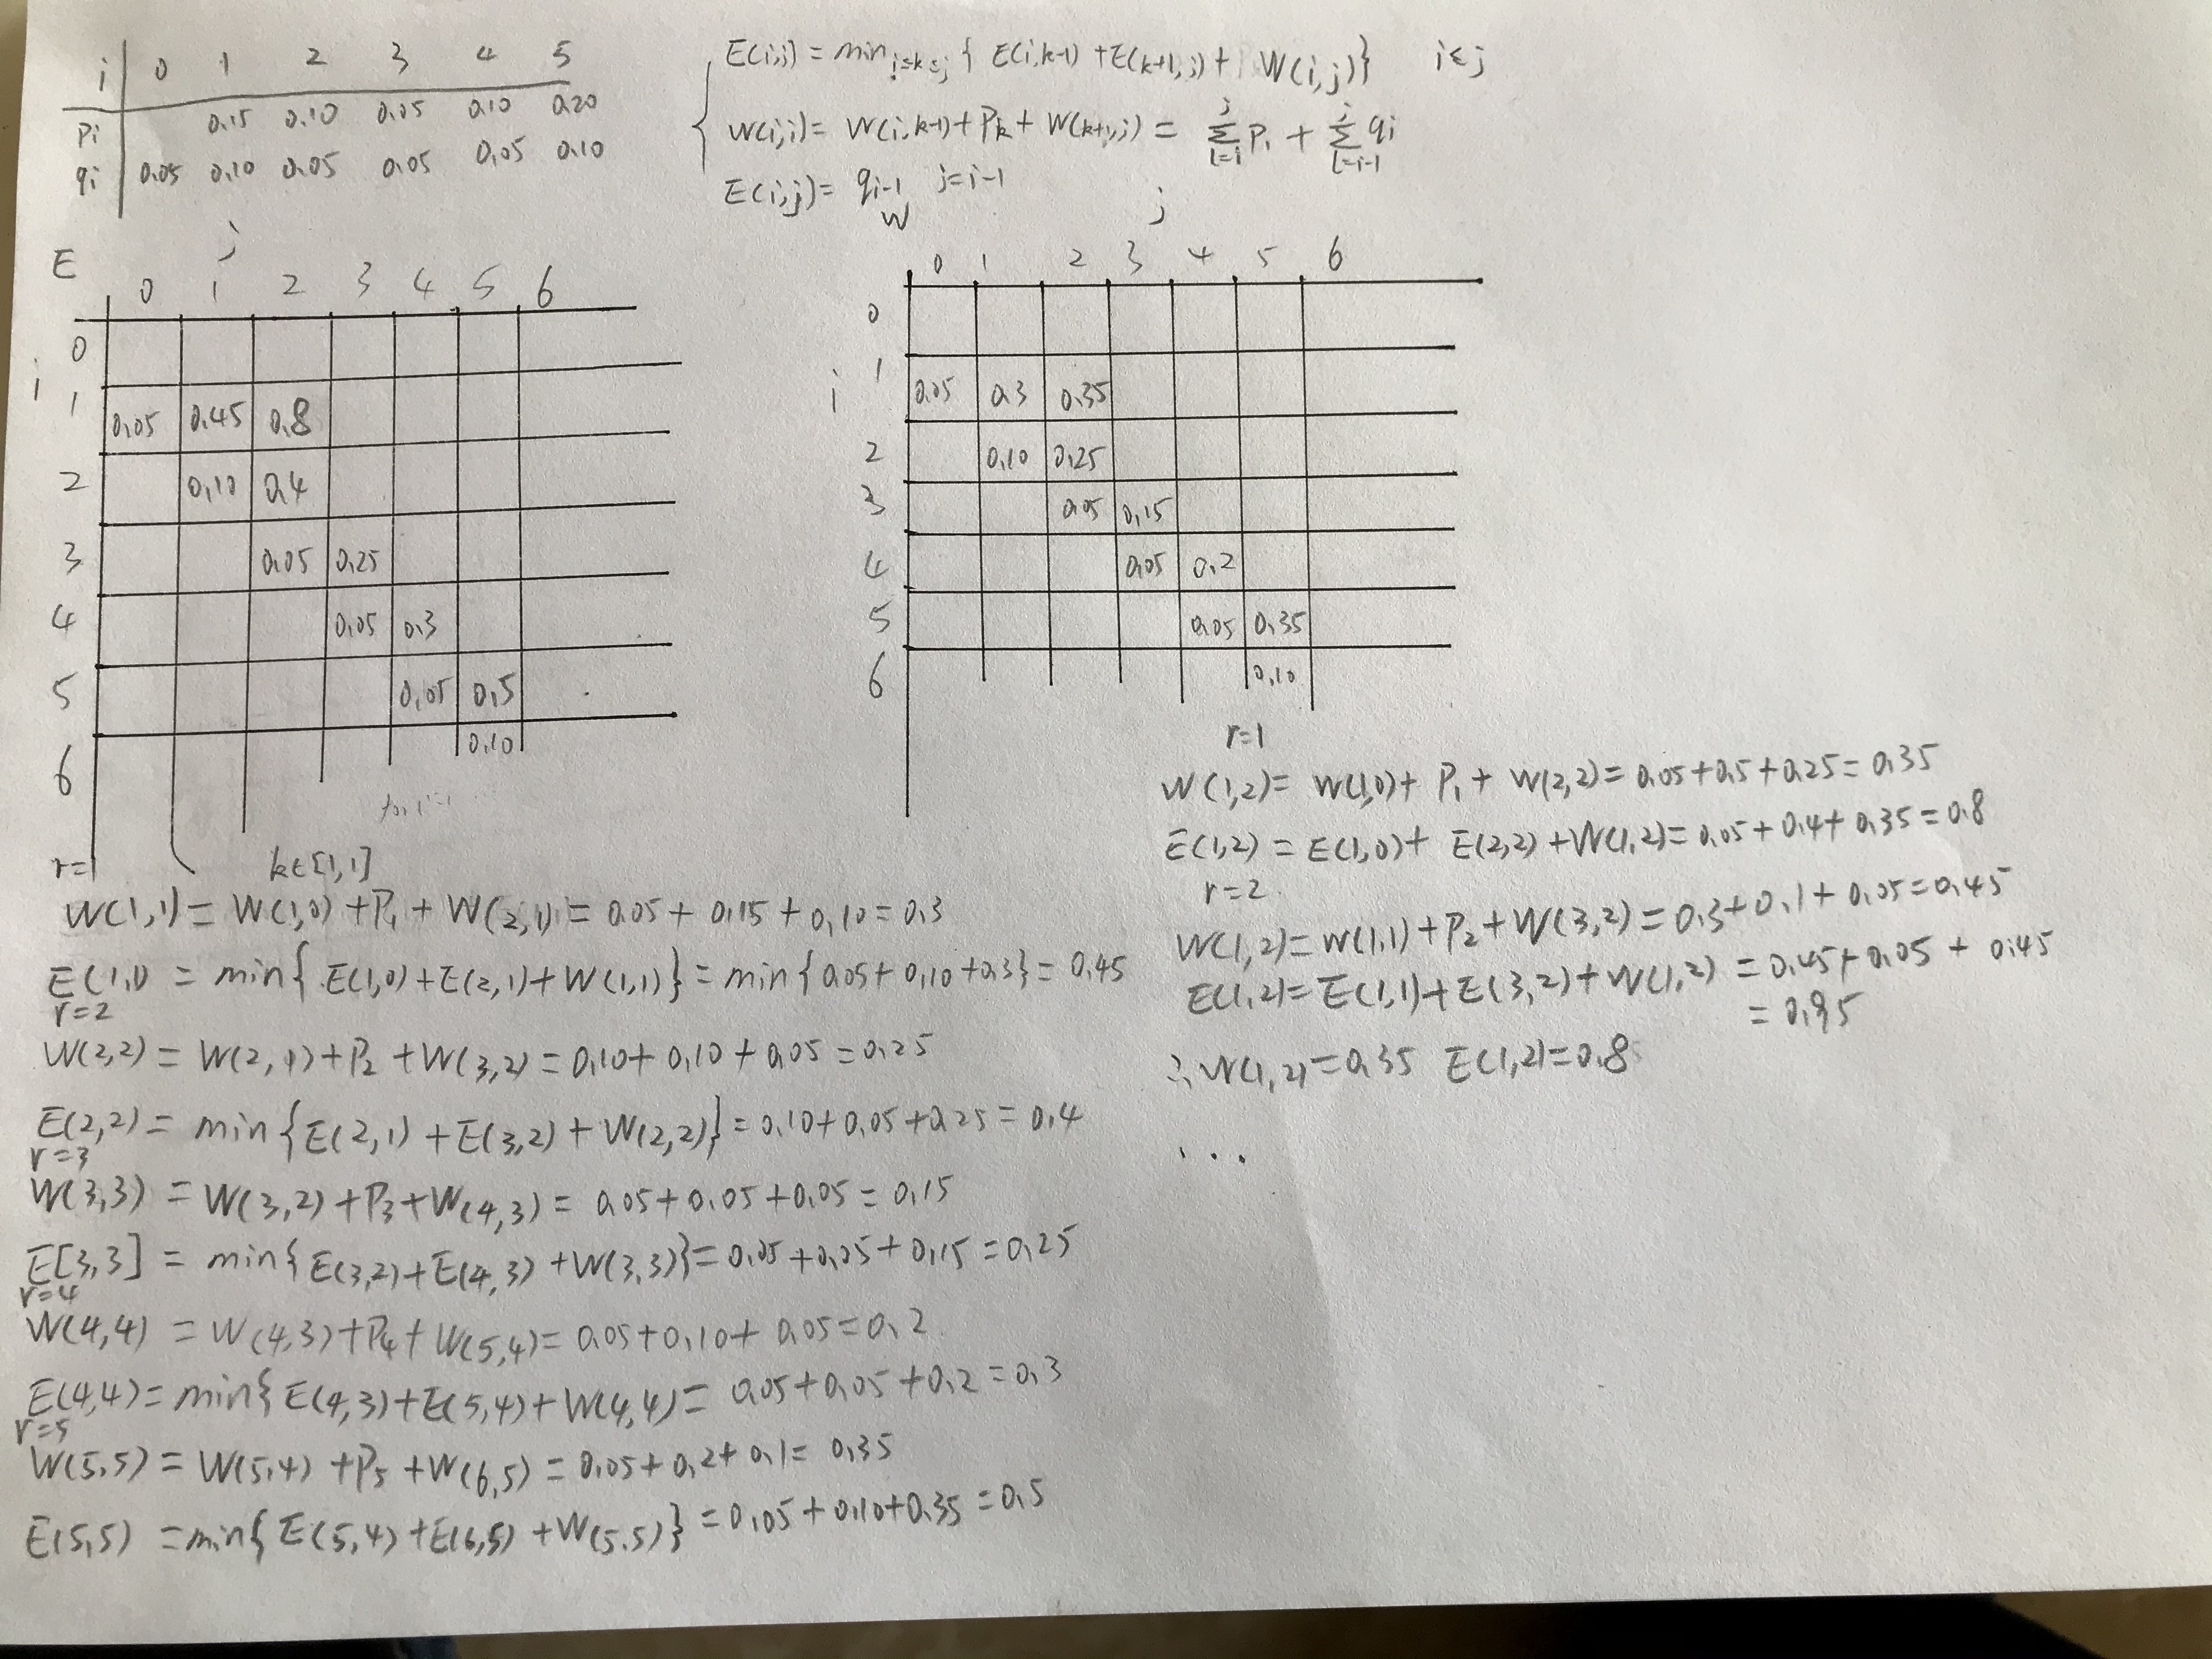 i 0 1 2 3 4 5
Pi 0.15 0.10 0.05 0.10 0.20
qi 0.05 0.10 0.05 0.05 0.05 0.10
E(i,j) = min i≤k≤j { E(i,k-1) + E(k+1,j) + W(i,j)} i≤j
W(i,j) = W(i,k-1) + Pk + W(k+1,j) = ∑ l=i j Pi + ∑ l=i-1 j qi
E(i,j) = qi-1 j=i-1
E j
0 1 2 3 4 5 6
0
i
1 0.05 0.45 0.8
2 0.10 0.4
3 0.05 0.25
4 0.05 0.3
5 0.05 0.5
6 0.10
W j
0 1 2 3 4 5 6
0
i
1 0.05 0.3 0.35
2 0.10 0.25
3 0.05 0.15
4 0.05 0.2
5 0.05 0.35
6 0.10
r=1 k∈[1,1]
W(1,1) = W(1,0) + P1 + W(2,1) = 0.05 + 0.15 + 0.10 = 0.3
E(1,1) = min{ E(1,0) + E(2,1) + W(1,1)} = min{0.05 + 0.10 + 0.3} = 0.45
r=2
W(2,2) = W(2,1) + P2 + W(3,2) = 0.10 + 0.10 + 0.05 = 0.25
E(2,2) = min{E(2,1) + E(3,2) + W(2,2)} = 0.10 + 0.05 + 0.25 = 0.4
r=3
W(3,3) = W(3,2) + P3 + W(4,3) = 0.05 + 0.05 + 0.05 = 0.15
E[3,3] = min{ E(3,2) + E(4,3) + W(3,3)} = 0.05 + 0.05 + 0.15 = 0.25
r=4
W(4,4) = W(4,3) + P4 + W(5,4) = 0.05 + 0.10 + 0.05 = 0.2
E(4,4) = min{ E(4,3) + E(5,4) + W(4,4) = 0.05 + 0.05 + 0.2 = 0.3
r=5
W(5,5) = W(5,4) + P5 + W(6,5) = 0.05 + 0.2 + 0.1 = 0.35
E(5,5) = min{ E(5,4) + E(6,5) + W(5,5)} = 0.05 + 0.10 + 0.35 = 0.5
r=1
W(1,2) = W(1,0) + P1 + W(2,2) = 0.05 + 0.5 + 0.25 = 0.35
E(1,2) = E(1,0) + E(2,2) + W(1,2) = 0.05 + 0.4 + 0.35 = 0.8
r=2
W(1,2) = W(1,1) + P2 + W(3,2) = 0.3 + 0.1 + 0.05 = 0.45
E(1,2) = E(1,1) + E(3,2) + W(1,2) = 0.45 + 0.05 + 0.45
= 0.95
∴ W(1,2) = 0.35 E(1,2) = 0.8
...